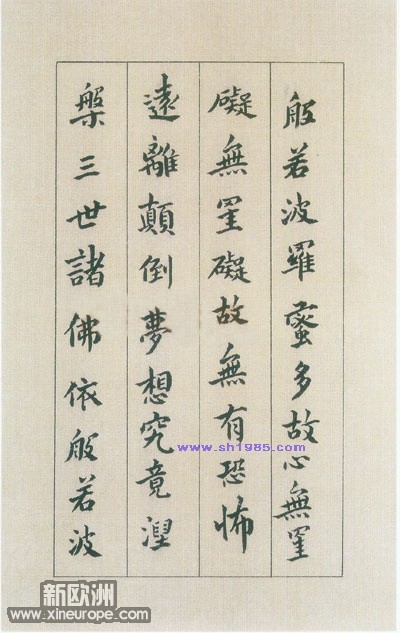 般若波羅蜜多故心無罣
礙無罣礙故無有恐怖
遠離顛倒夢想究竟涅
槃三世諸佛依般若波
www.sh1985.com
新欧洲
www.xineurope.com